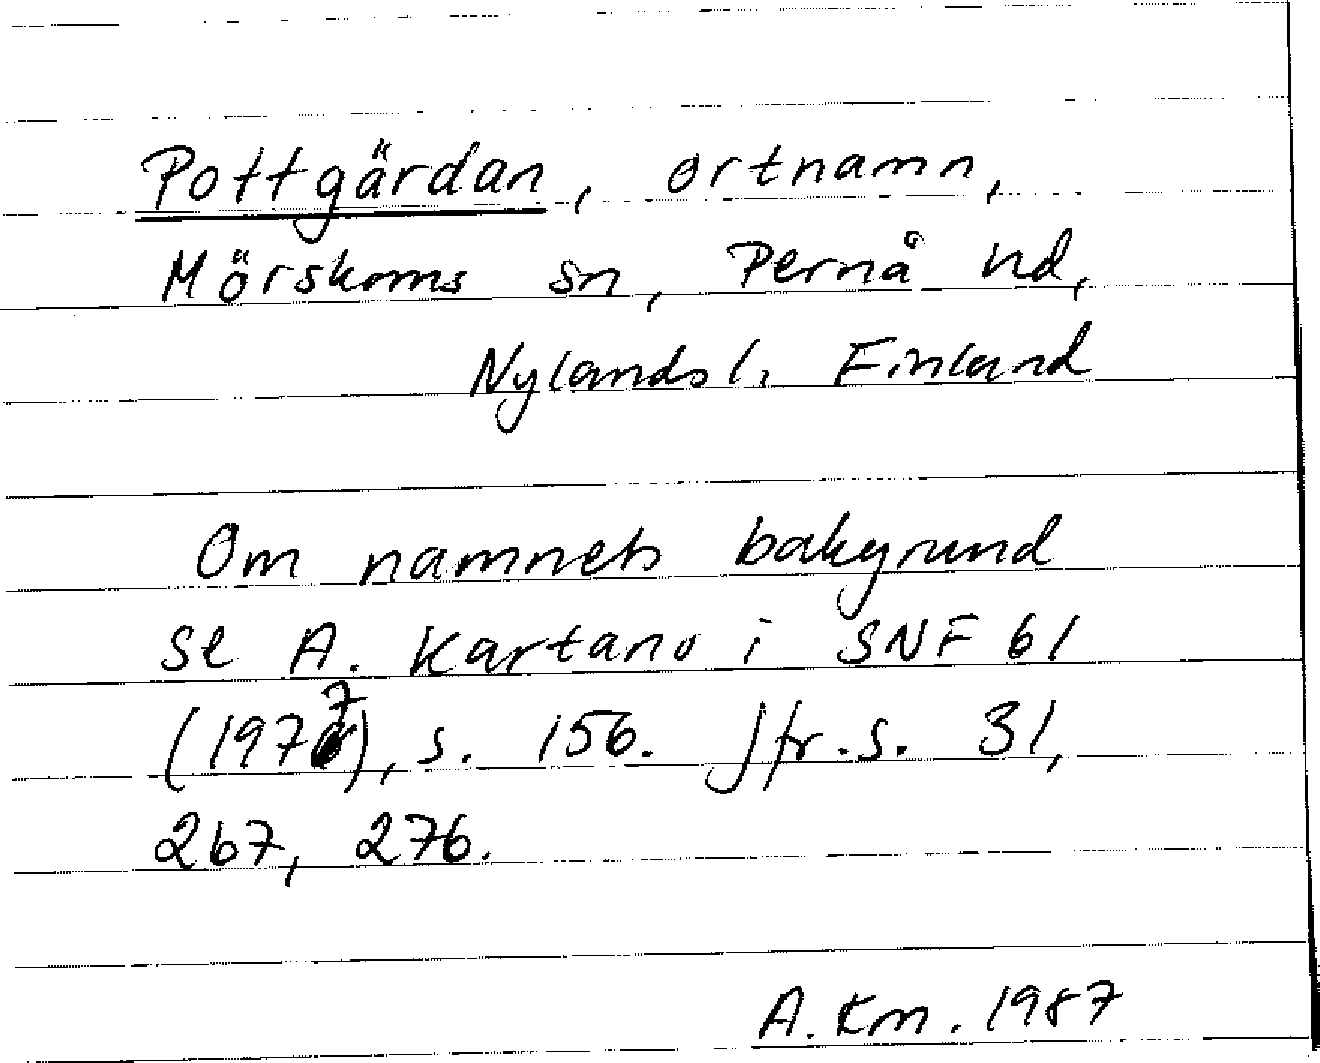 Pottgärdan, ortnamn,
Mörskoms sn, Pernå hd,
Nylands l, Finland
Om namnets bakgrund
se A. Kartano i SNF 61
(1977), s. 156. Jfr. s. 31,
267, 276.
A. Km. 1987